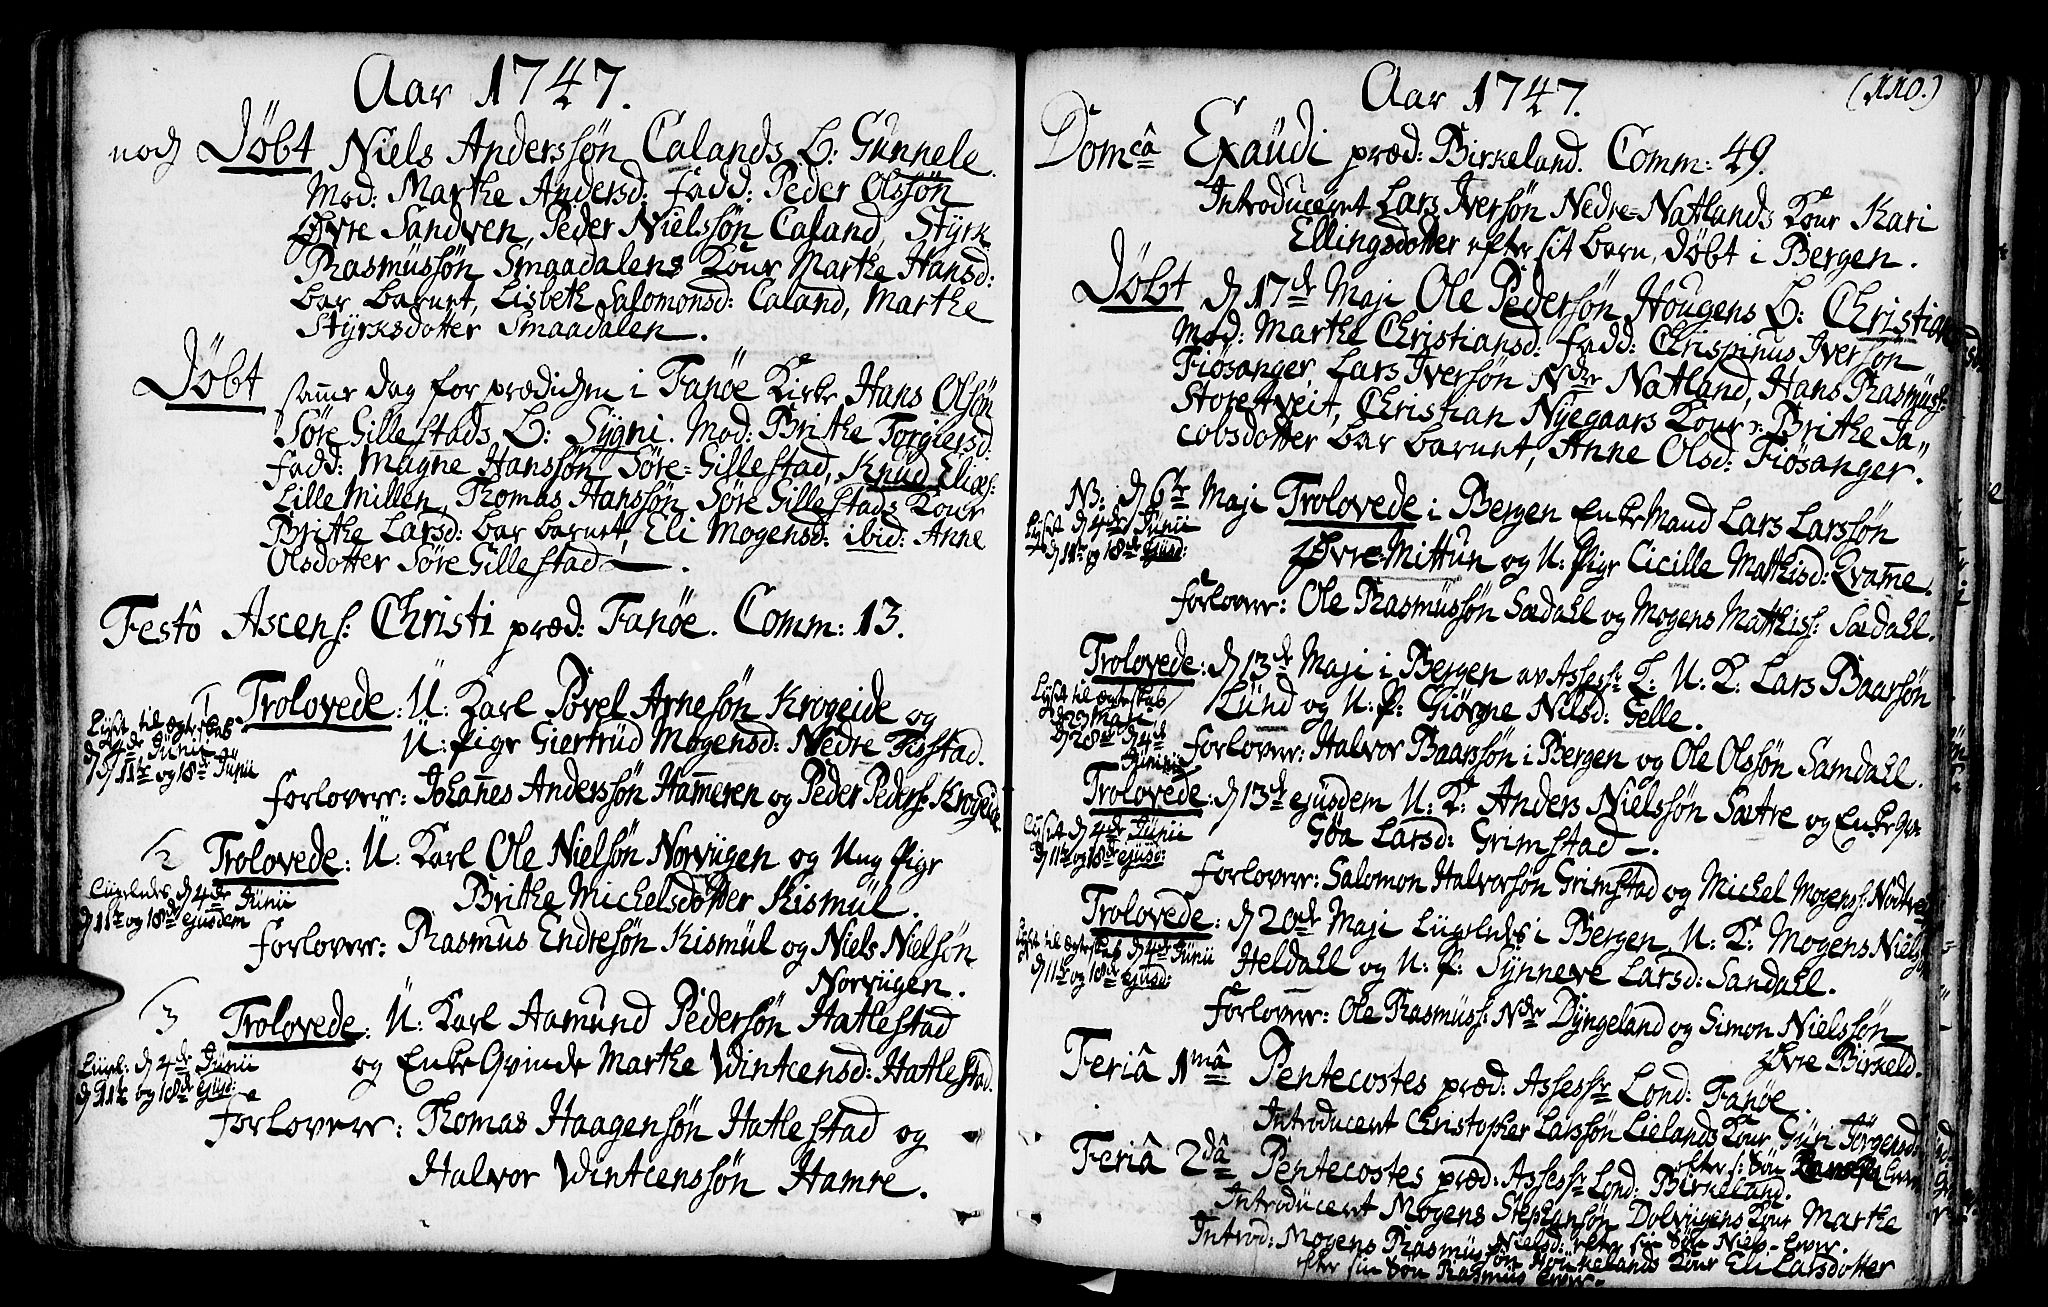 Aar 1747.
noch Döbt Niels Anderssön Calands B: Gunnele.
Mod: Marthe Andersd: Fadd: Peder Olssön
Øvre Sandven, Peder Nielssön Caland, Styrk
Rasmussön Smaadalens Kone Marthe Hansd:
bar barnet, Lisbeth Salomonsd: Caland, Marthe
Styrksdotter Smaadalen.
Döbt samme dag for prædichen i Fanöe Kirke, Hans Olsön
Söre Gillestads B: Sygni. Mod: Brithe Torgiersd:
Fadd: Magne Hanssön Söre-Gillestad, Knud Elias:
Lille Millen, Thomas Hanssön Söre Gillestads Kone
Brithe Larsd: bar barnet, Eli Mogensd: ibid: Anne
Olsdotter Söre Gillestad.
Festô Ascens: Christi præd: Fanöe. Comm: 13.
1 Trolovede: U: Karl Povel Arnesön Krogeide og
U: Pige Giertrud Mogensd: Nedre Titlestad.
Lyst til ægteskab
d 4de Junii
d 11te og 18de Junii
Forlovere: Johannes Anderssön Hammeren og Peder Peders: Krogeide
2 Trolovede: U: Karl Ole Nielsön Norvügen og Ung Pige
Brithe Michelsdotter Kismül.
Liusledes d 4de Junii
d 11te og 18de ejusdem
Forlovere: Rasmus Endresön Kismül og Niels Nielsön
Norvügen.
3 Trolovede: U: Karl Aamund Pedersön Hatlestad
og Enke Qvinde Marthe Wintcensd: Hatlestad.
Liusl: d 4de Junii
d 11te og 18de Ejusd:
Forlovere: Thomas Haagensön Hatlestad og
Halvor Wintcenssön Hamre.
Aar 1747. (110.)
Domcâ Exaudi præd: Birkeland. Comm: 49.
Introduceret Lars Iversön Nedre-Natlands Kone Kari
Ellingsdotter efter sit barn, döbt i Bergen.
Döbt d 17de Maji Ole Pedersön Hougens B: Christian
Mod: Marthe Christiansd: Fadd: Chrispinus Iversön
Fiösanger, Lars Iversön Ndre Natland, Hans Rasmuss:
Storetveit, Christian Nyegaars Kone Brithe Ja-
cobsdotter bar barnet, Anne Olsd: Fiösanger.
NB: d 6te Maji Trolovede i Bergen Enke Mand Lars Larssön
Øvre-Mittun og U: Pige Cicille Mathisd: Qvamme.
Lyst d 4de Junii
d 11te og 18de Ejusd:
Forlovere: Ole Rasmussön Sædahl og Mogens Matthis: Sædahl.
Trolovede: d 13de Maji i Bergen av Assess: L: U: K: Lars Baarsön
Lund og U: P: Giörne Nilsd: Gelle.
Lyst til ægteskab
d 23 Maji
d 28de d 4de
Junii
Forlovere: Halvor Baarssön i Bergen og Ole Olssön Samdahl.
Trolovede: d 13de ejusdem U: K: Anders Nielssön Sætre og Enke Qv:
Göa Larsd: Grimstad.
Lyst d 4de Junii
d 11 og 18de ejusd:
Forlovere: Salomon Halvorsön Grimstad og Michel Mogens: Nodtvedt
Trolovede: d 20de Maji Liusledes i Bergen U: K: Mogens Niels:
Heldahl og U: P: Synneve Larsd: Sandahl.
Lyst til ægteskab d 4de Junii
d 11te og 18de ejusd:
Forlovere: Ole Rasmuss: Ndre Dyngeland og Simon Nielssön
Øvre Birkeld.
Feriâ 1mâ Pentecostes præd: Assess: Lond: Fanöe.
Introduceret Christopher Larssön Lielands Kone Guri Jörgensd:
efter s: Sön
Feriâ 2dâ Pentecostes præd: Assess: Lond: Birkeland.
Introduceret Mogens Stephensön Dolvügens Kone Marthe
Nielsd: efter sin Sön Niels
Introd: Mogens Rasmussön Houkelands Kone Eli Larsdotter
efter sin Sön Rasmus